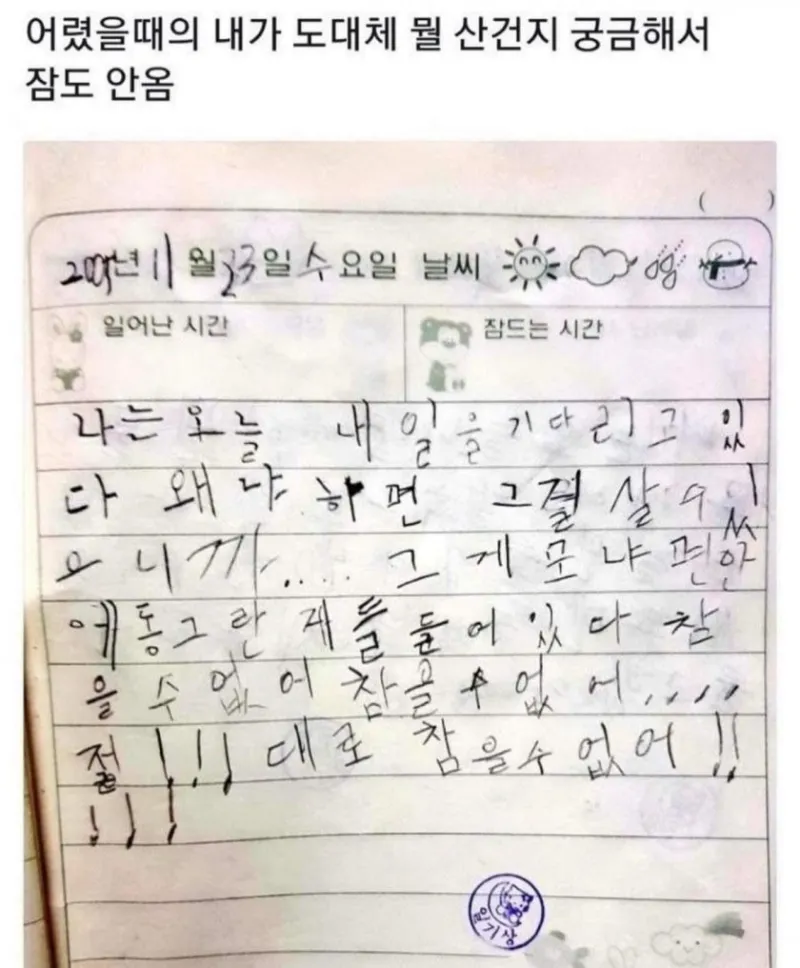 어렸을때의 내가 도대체 뭘 산건지 궁금해서
잠도 안옴
( )
년 11 월 23 일 수 요일 날씨
일어난 시간 잠드는 시간
나는 오늘 내일을 기다리고 있
다 왜냐하면 그걸 살 수 있
으니까..... 그게 모냐면 안
에 동그란 재들 들어있다 참
을 수 없어 참을 수 없어....
절!!! 대로 참을수 없어!!
!!!
일기상